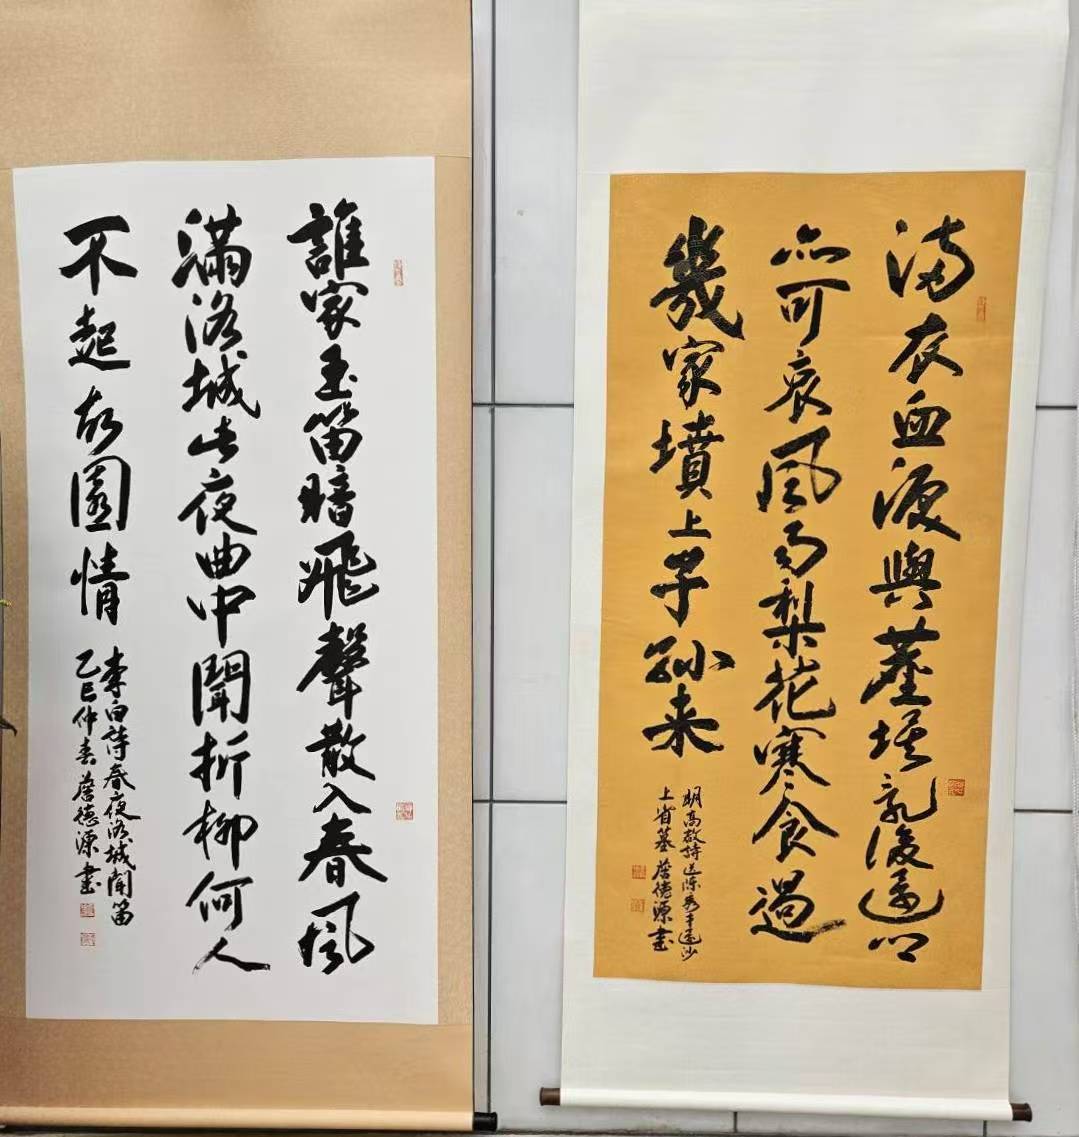 满衣血淚與塵埃亂後還鄉
亦可哀風雨梨花寒食過
幾家墳上子孫来
明高啟詩送陳秀才還沙
上省墓 詹德源書
誰家玉笛暗飛聲散入春風
滿洛城此夜曲中聞折柳何人
不起故園情
李白詩春夜洛城聞笛
乙巳仲春詹德源書